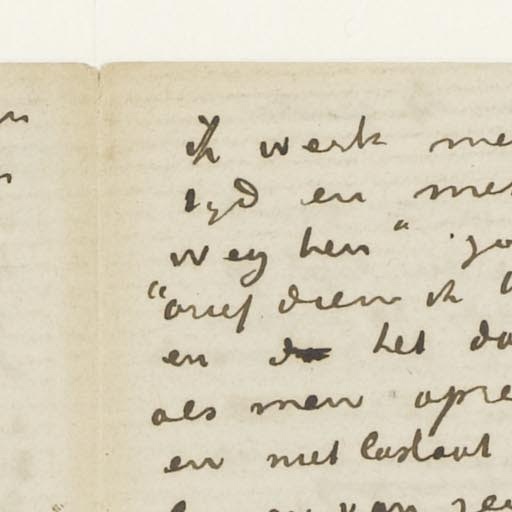 ik werk me
tyd en met
weg ben" zo
"orief dien ik
en het do
als men opre
en niet loslaat
van